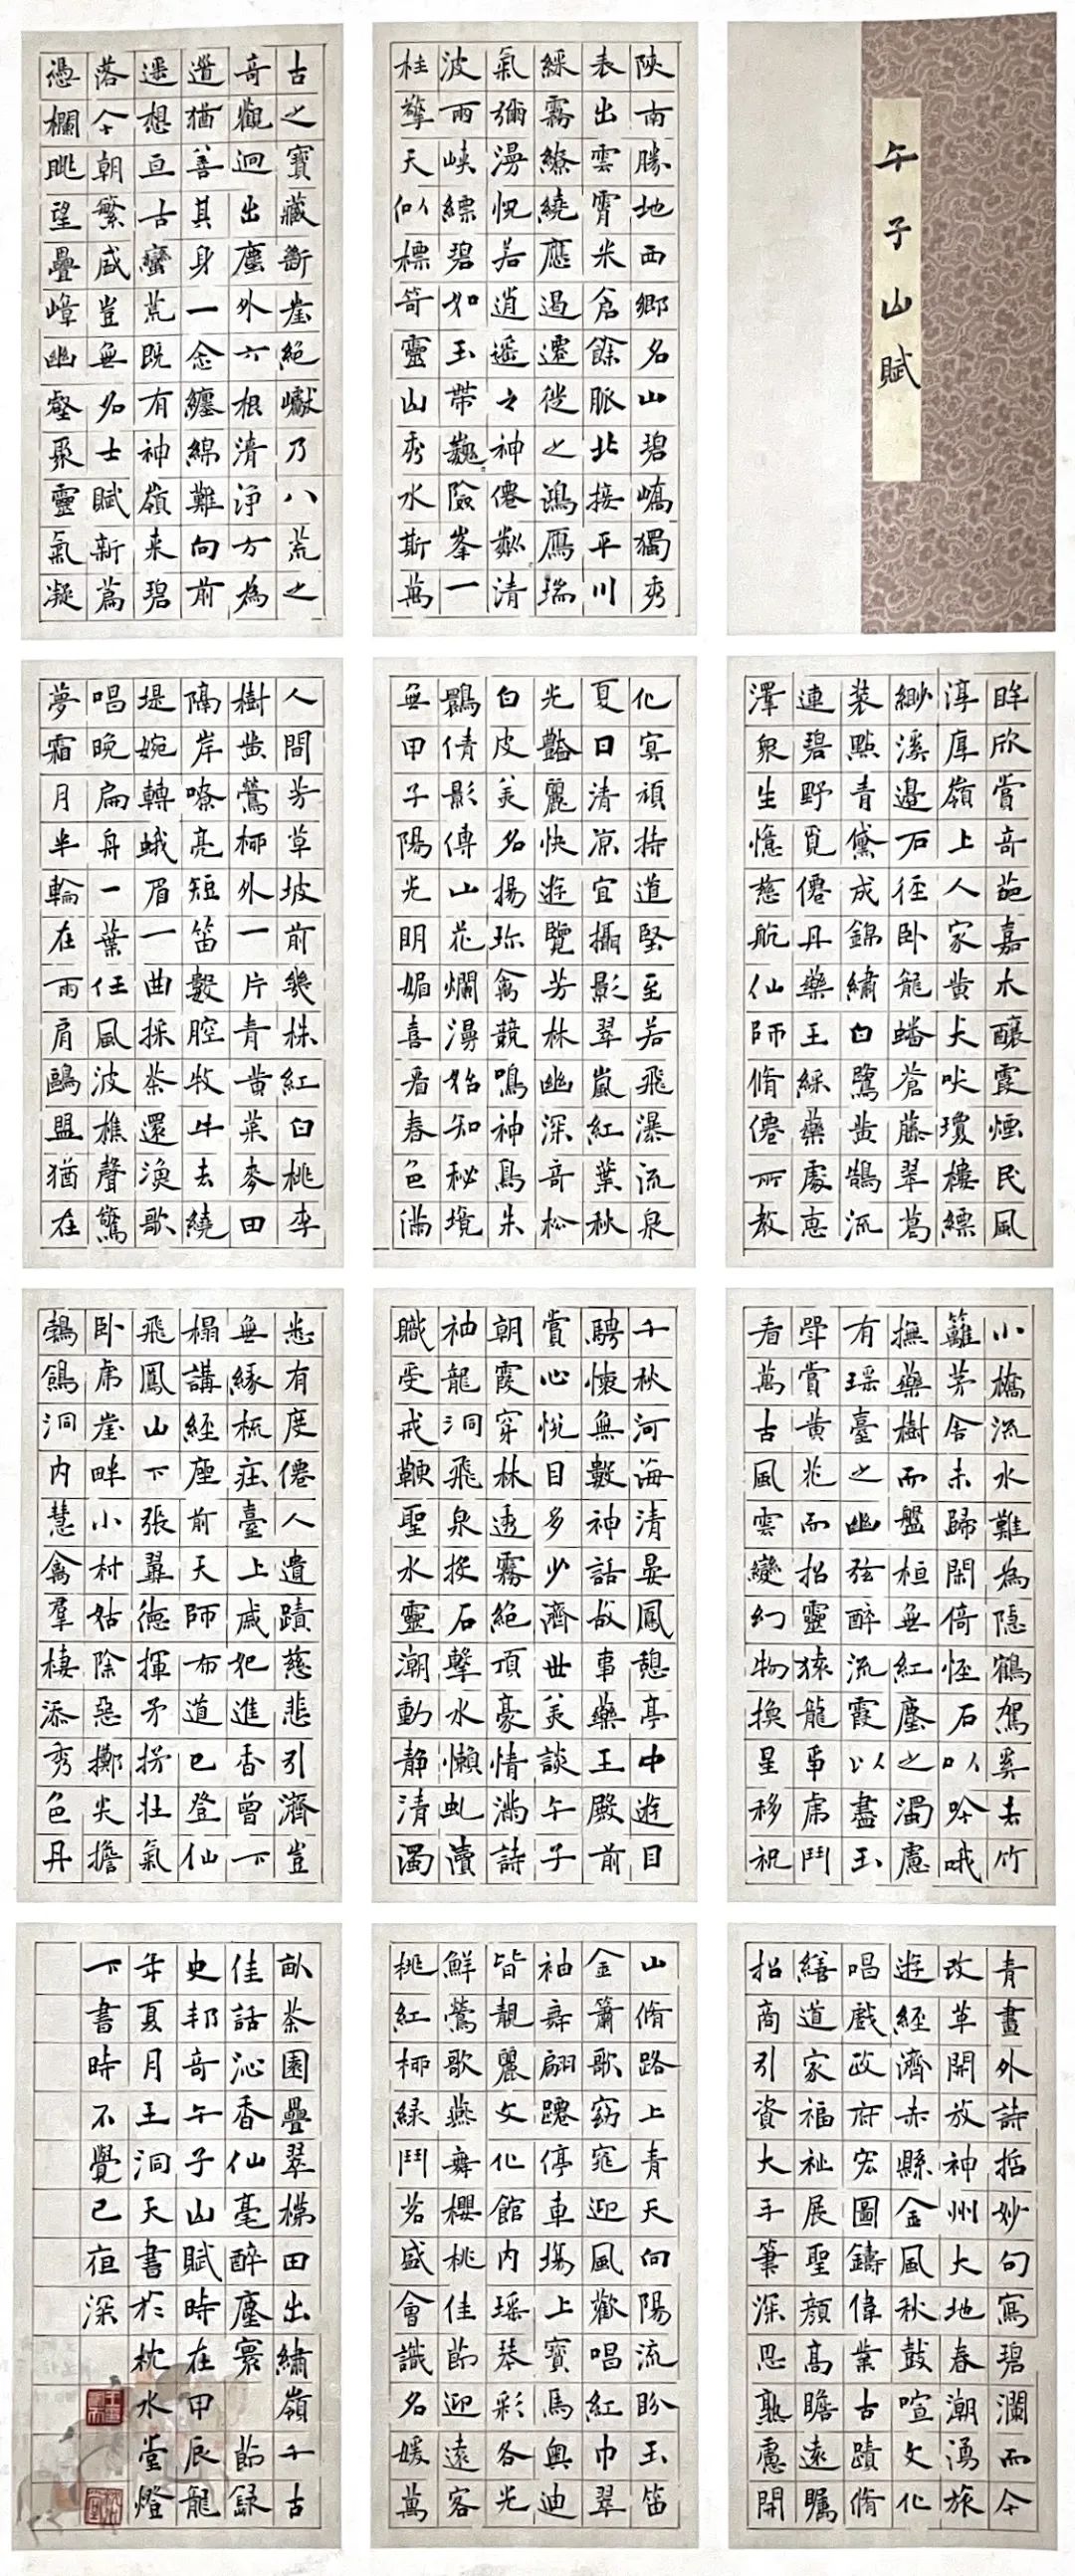 午子山賦
陝南勝地西鄉名山碧嶠獨秀
表出雲霄米倉餘脈北接平川
綵霧繚繞應過遷徙之鴻鴈瑞
氣彌漫怳若逍遥之神僊粼清
波兩峽縹碧如玉帶巍險峯一
柱擎天似標笴靈山秀水斯萬
古之寶藏斷崖絕巘乃八荒之
奇觀迥出塵外六根清淨方為
猶善其身一念纏綿難向前
遥想亘古蠻荒既有神嶺来碧
落今朝繁盛豈無名士賦新篇
憑欄眺望疊嶂幽壑聚靈氣凝
眸欣賞奇葩嘉木釀霞煙民風
淳厚嶺上人家黄犬吠瓊樓縹
緲溪邊石徑卧龍蟠蒼藤翠葛
装點青黛成錦繡白鷺黄鵠流
連碧野覓僊丹藥王綵藥處惠
澤衆生憶慈航仙師脩僊所教
化冥頑持道堅至若飛瀑流泉
夏日清凉宜攝影翠嵐紅葉秋
光豔麗快遊覽芳林幽深奇松
白皮美名揚珎禽競鳴神鳥朱
鸝倩影傳山花爛漫始知秘境
無甲子陽光明媚喜看春色滿
人間芳草坡前幾株紅白桃李
樹黄鶯柳外一片青黄菜麥田
隔岸嘹亮短笛數腔牧牛去繞
堤婉轉蛾眉一曲採茶還漁歌
唱晚扁舟一葉任風波樵聲驚
夢霜月半輪在兩肩鷗盟猶在
小橋流水難為隱鶴駕奚去竹
籬茅舍未歸閑倚怪石以吟哦
撫藥樹而盤桓無紅塵之濁慮
有瑶臺之幽弦醉流霞以盡玉
斝賞黄花而招靈猿龍爭虎鬥
看萬古風雲變幻物換星移祝
千秋河海清晏鳳憩亭中遊目
騁懷無數神話故事藥王殿前
賞心悅目多少濟世美談午子
朝霞穿林透霧絕頂豪情滿詩
袖龍洞飛泉挼石擊水懶虬瀆
職受戒鞭聖水靈潮動静清濁
悉有度僊人遺蹟慈悲引濟豈
無緣梳臺上戚妃進香曾下
榻講經座前天師布道已登仙
飛鳳山下張翼德揮矛拐壯氣
卧虎崖畔小村姑除惡擲尖擔
鵓鴿洞内慧禽羣棲添秀色丹
青畫外詩括妙句寫碧瀾而今
改革開放神州大地春潮湧旅
遊經濟赤縣金風秋鼓喧文化
唱戲政府宏圖鑄偉業古蹟脩
繕道家福祉展聖顏高瞻遠矚
招商引資大手筆深思熟慮開
山脩路上青天向陽流盼玉笛
金簫歌窈窕迎風歡唱紅巾翠
袖舞翩躚停車塲上寶馬奥迪
皆靚麗文化館内瑶琴彩各光
鮮鶯歌燕舞櫻桃佳節迎遠客
桃紅柳綠鬥茗盛會識名媛萬
畝茶園疊翠梯田出繡嶺千古
佳話沁香仙毫醉塵寰 節録
史邦奇午子山賦時在甲辰龍
年夏月王洞天書於枕水堂燈
下書時不覺已夜深